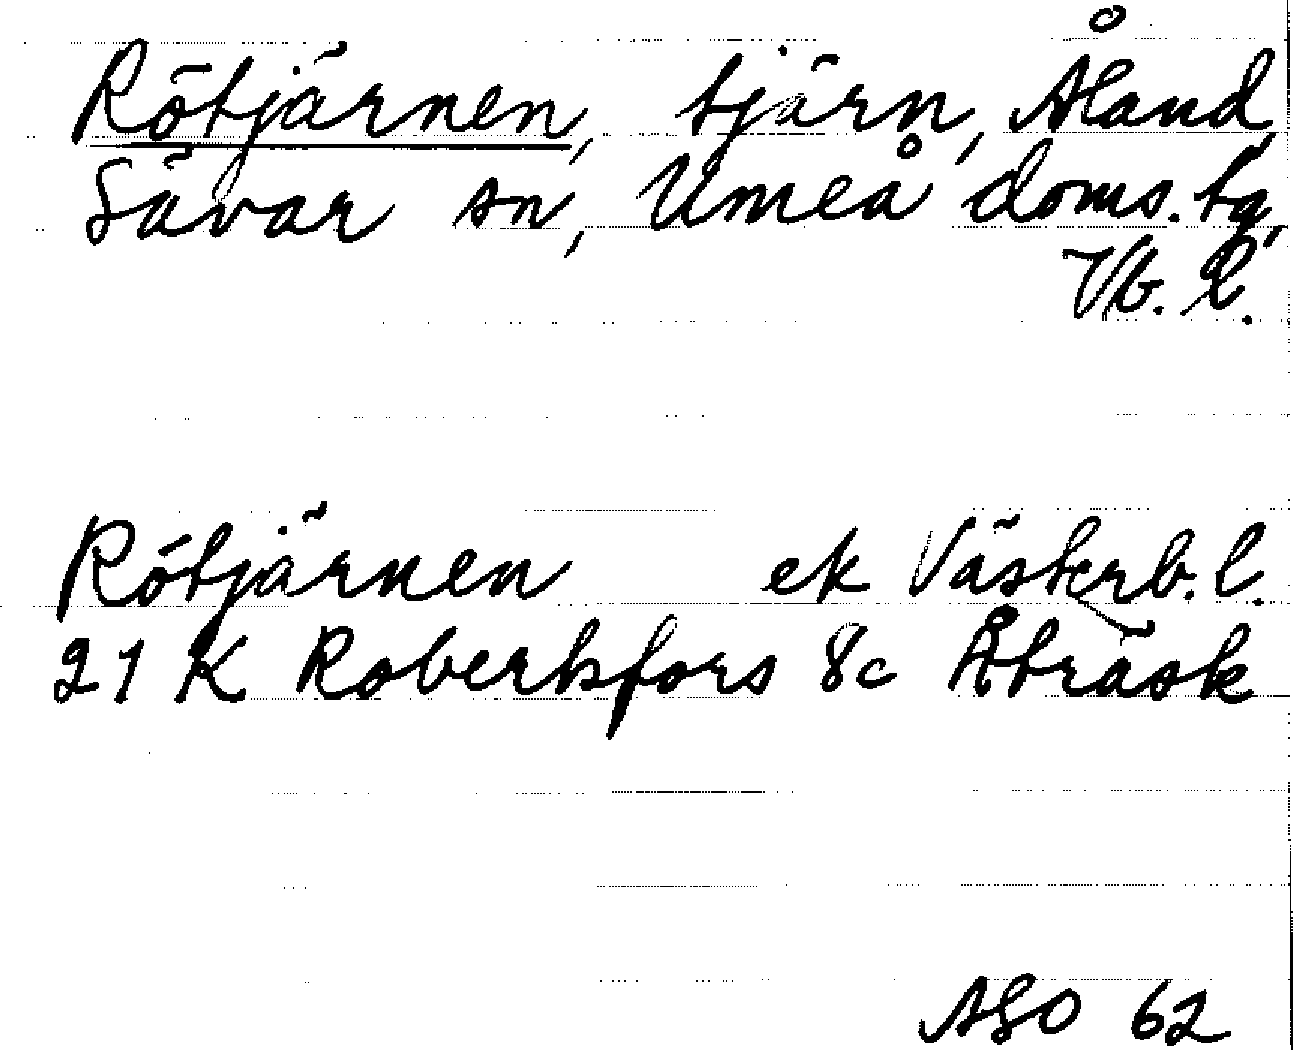 Rötjärnen, tjärn, Åland,
Sävar sn, Umeå doms. tg,
Vb. l.
Rötjärnen ek Västerb. l.
21 K Robertsfors 8c Åträsk
ASO 62